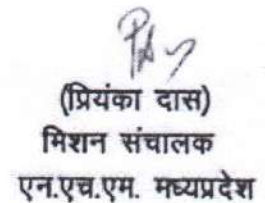 (प्रियंका दास)
मिशन संचालक
एन.एच.एम. मध्यप्रदेश